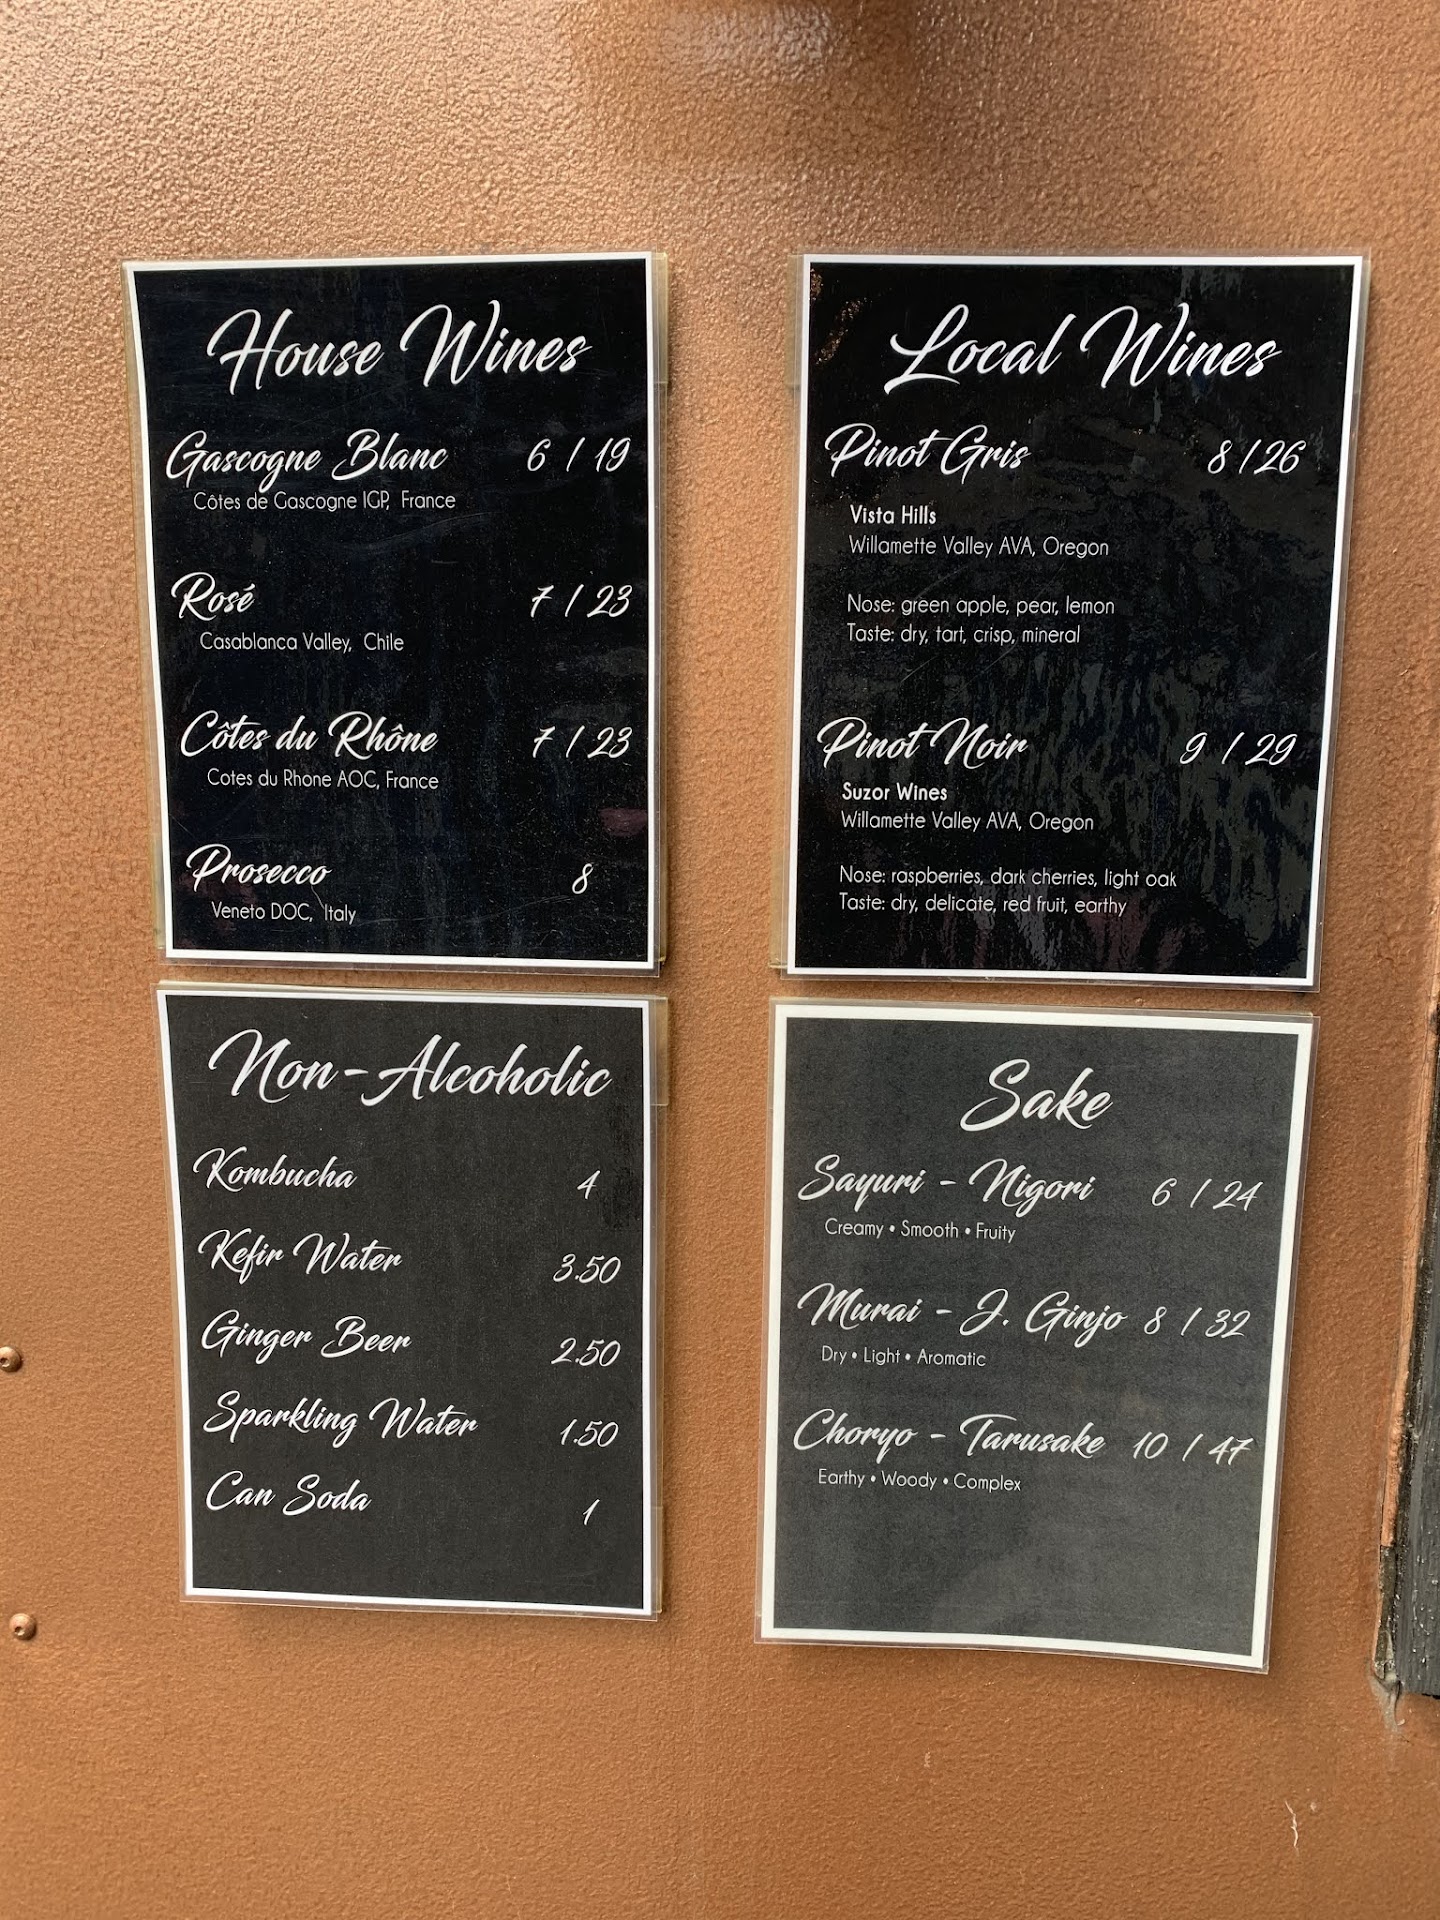 House Wines
Gascogne Blanc 6 / 19
Côtes de Gascogne IGP, France
Rosé 7 / 23
Casablanca Valley, Chile
Côtes du Rhône 7 / 23
Cotes du Rhone AOC, France
Prosecco 8
Veneto DOC, Italy
Local Wines
Pinot Gris 8 / 26
Vista Hills
Willamette Valley AVA, Oregon
Nose: green apple, pear, lemon
Taste: dry, tart, crisp, mineral
Pinot Noir 9 / 29
Suzor Wines
Willamette Valley AVA, Oregon
Nose: raspberries, dark cherries, light oak
Taste: dry, delicate, red fruit, earthy
Non-Alcoholic
Kombucha 4
Kefir Water 3.50
Ginger Beer 2.50
Sparkling Water 1.50
Can Soda 1
Sake
Sayuri - Nigori 6 / 24
Creamy • Smooth • Fruity
Murai - J. Ginjo 8 / 32
Dry • Light • Aromatic
Choryo - Tarusake 10 / 47
Earthy • Woody • Complex